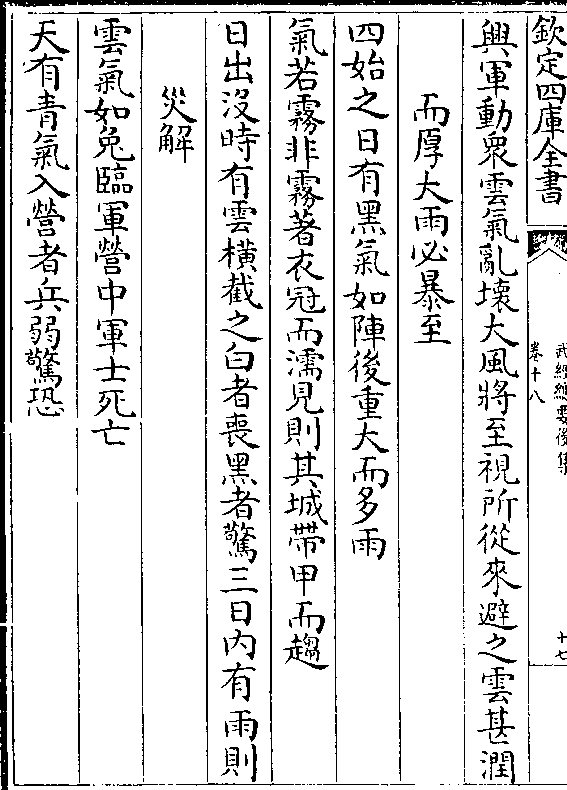 欽定四庫全書
武經總要後集
卷十八
十七
興軍動衆雲氣亂壞大風將至視所從來避之雲甚潤
而厚大雨必暴至
四始之日有黑氣如陣後重大而多雨
氣若霧非霧著衣冠而濡見則其城帶甲而趨
日出沒時有雲橫截之白者喪黑者驚三日内有雨則
災解
雲氣如兔臨軍營中軍士死亡
天有青氣入營者兵弱驚恐